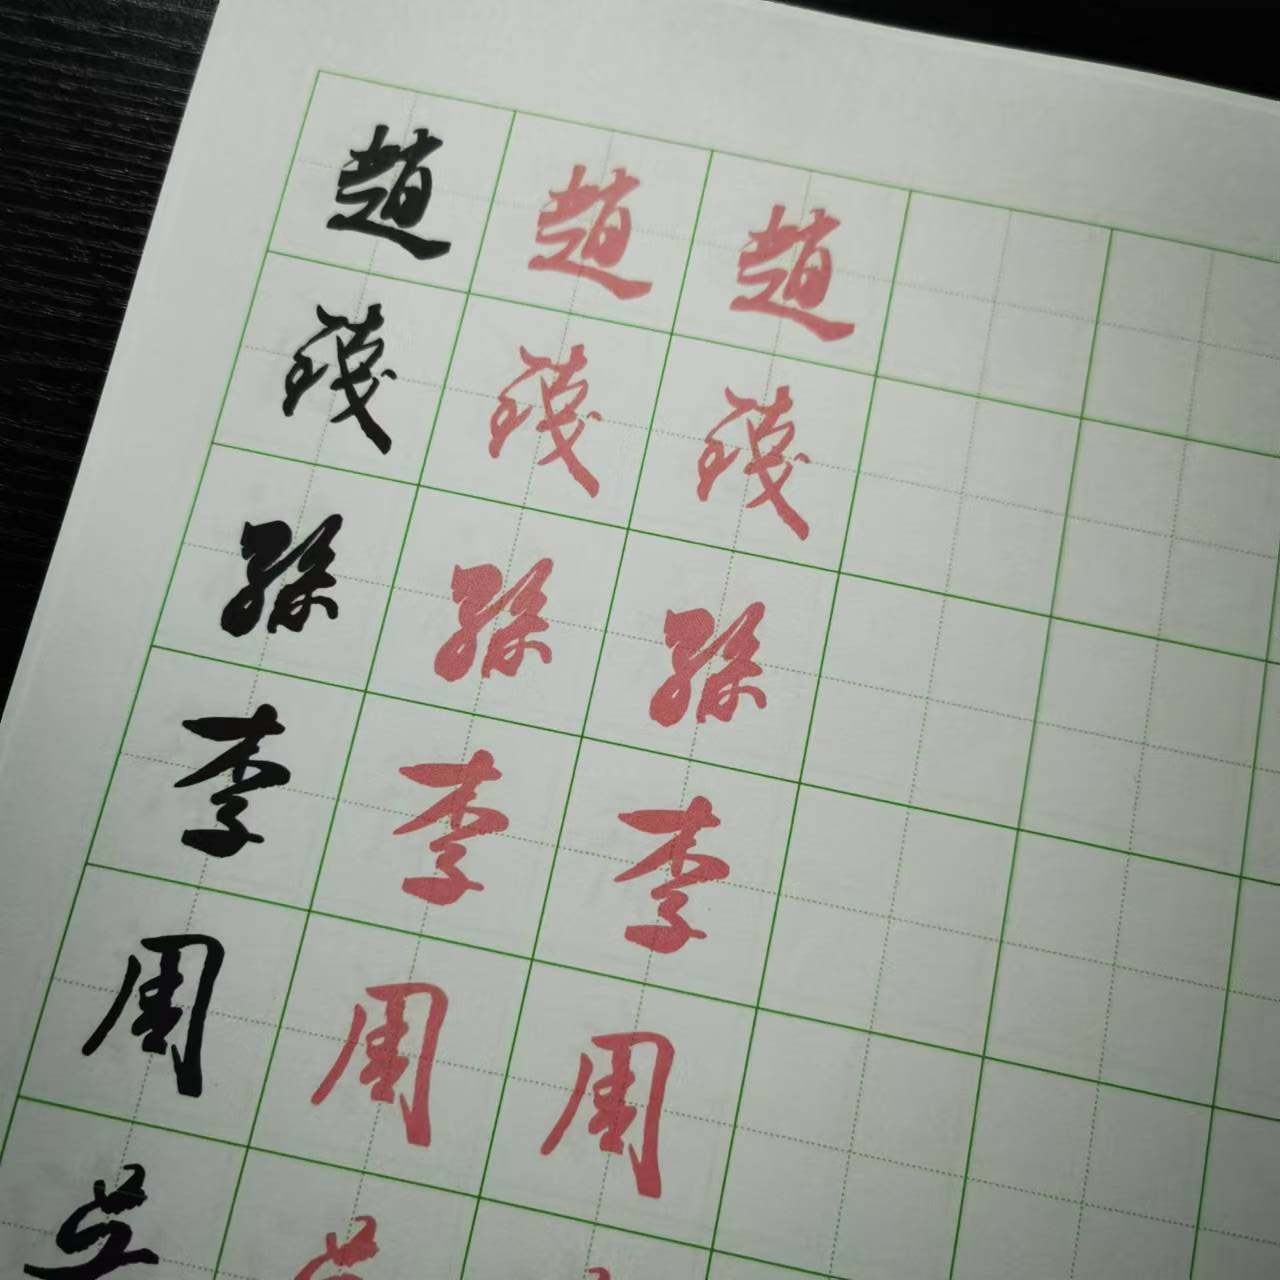 趙 趙 趙
錢 錢 錢
孫 孫 孫
李 李 李
周 周 周